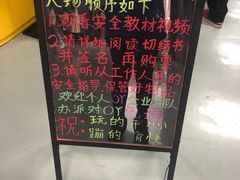 入场顺序如下
1.观看安全教材视频
2.请详细阅读切结书
并签名,再购票
3.请听从工作人员的
安全指导,保管好物品
欢迎个人or企业团队
办派对or
祝:玩的开心
蹦的愉快